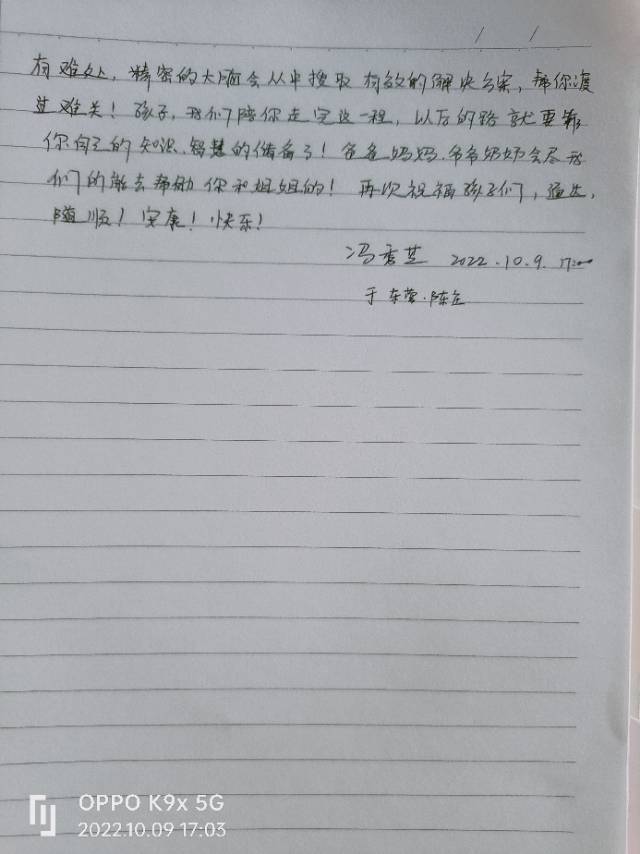 有难处，精密的大脑会从中搜取有效的解决方案，帮你渡
过难关！孩子，我们陪你走完这一程，以后的路就要靠
你自己的知识、智慧的储备了！爸爸妈妈、爷爷奶奶会尽我
们的能去帮助你和姐姐的！再次祝福孩子们，通达，
顺！安康！快乐！
冯秀芝 2022.10.9. 17:00
于东营·陈庄
OPPO K9x 5G
2022.10.09 17:03